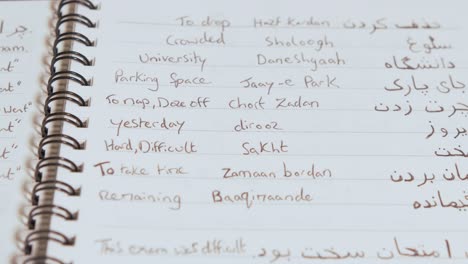 To drop Hazf Kardan حذف کردن
Crowded Sholoogh شلوغ
University Daneshgaah دانشگاه
Parking Space Jaay-e Park جای پارک
To nap, Doze off Chort Zadan چرت زدن
yesterday dirooz دیروز
Hard, Difficult Sakht سخت
To take time Zamaan bordan زمان بردن
Remaining Baaqimaande
This exam was difficult. امتحان سخت بود.